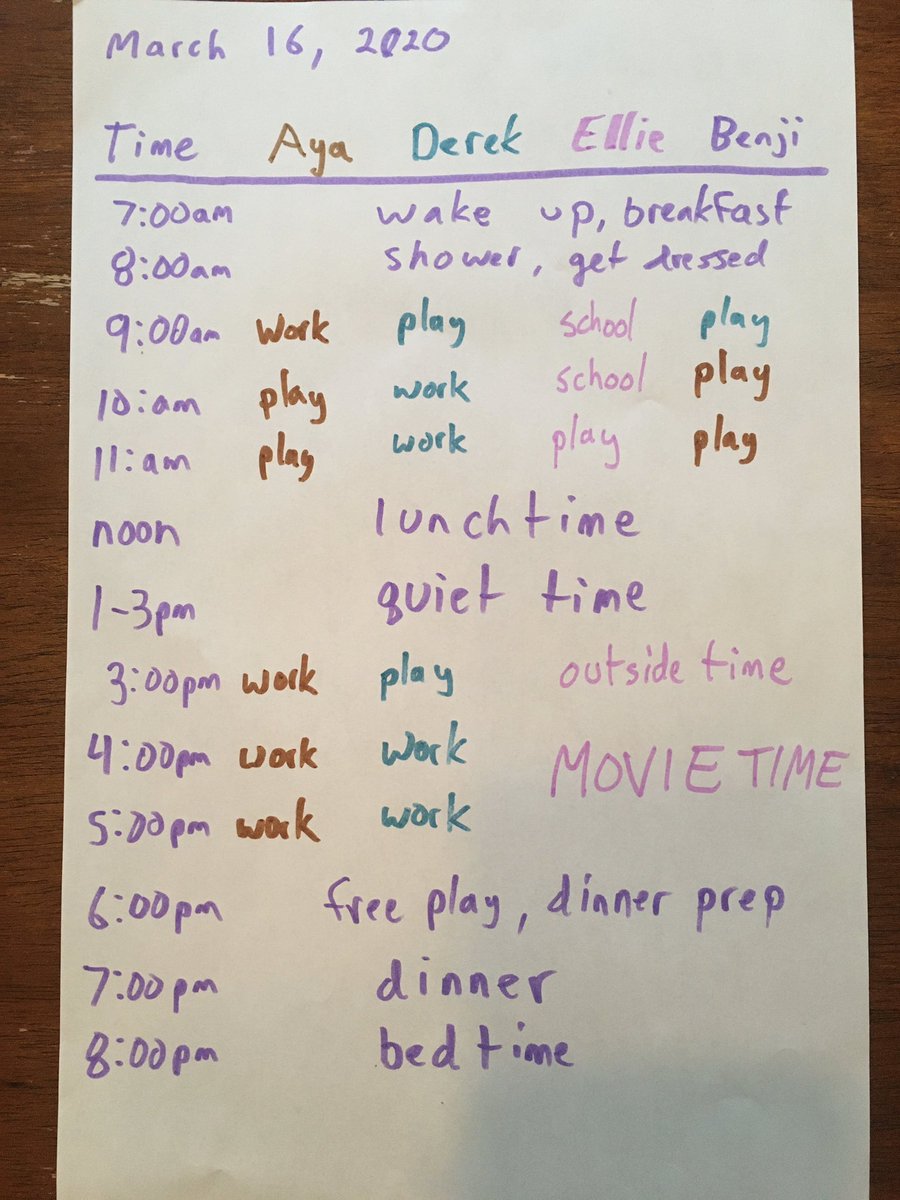 March 16, 2020
Time Aya Derek Ellie Benji
7:00am wake up, breakfast
8:00am shower, get dressed
9:00am work play school play
10:am play work school play
11:am play work play play
noon lunchtime
1-3pm quiet time
3:00pm work play outside time
4:00pm work work MOVIE TIME
5:00pm work work
6:00pm free play, dinner prep
7:00pm dinner
8:00pm bedtime